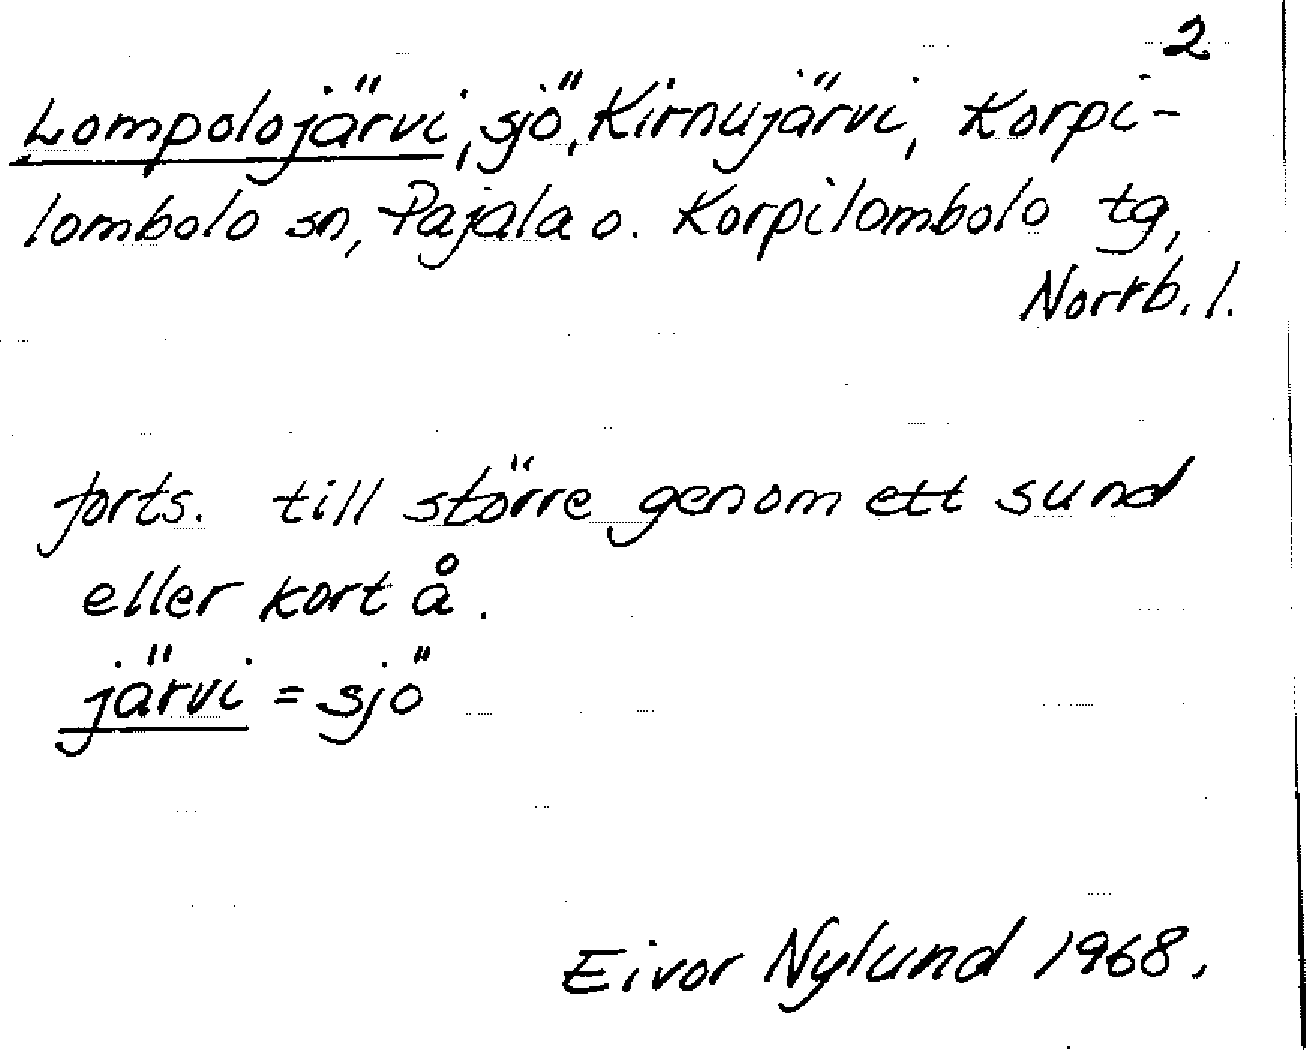 2
Lompolojärvi, sjö, Kirnujärvi, Korpi-
lombolo sn, Pajala o. Korpilombolo tg,
Norrb. l.
forts. till större genom ett sund
eller kort å.
järvi = sjö
Eivor Nylund 1968.